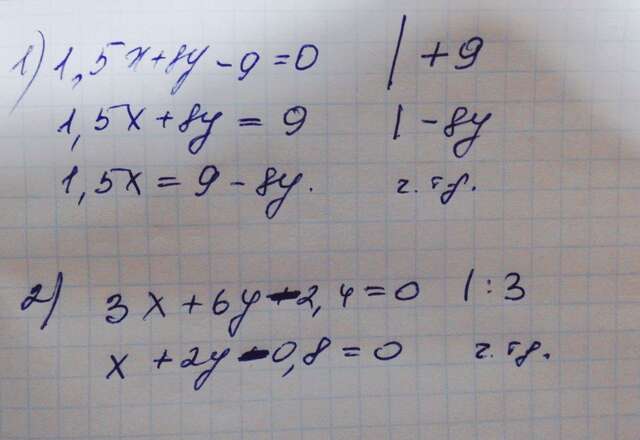 1) 1,5x+8y-9=0 | +9
1,5x+8y = 9 | -8y
1,5x = 9-8y. ч. тд.
2) 3x+6y-2,4=0 | :3
x+2y-0,8=0 ч. тд.